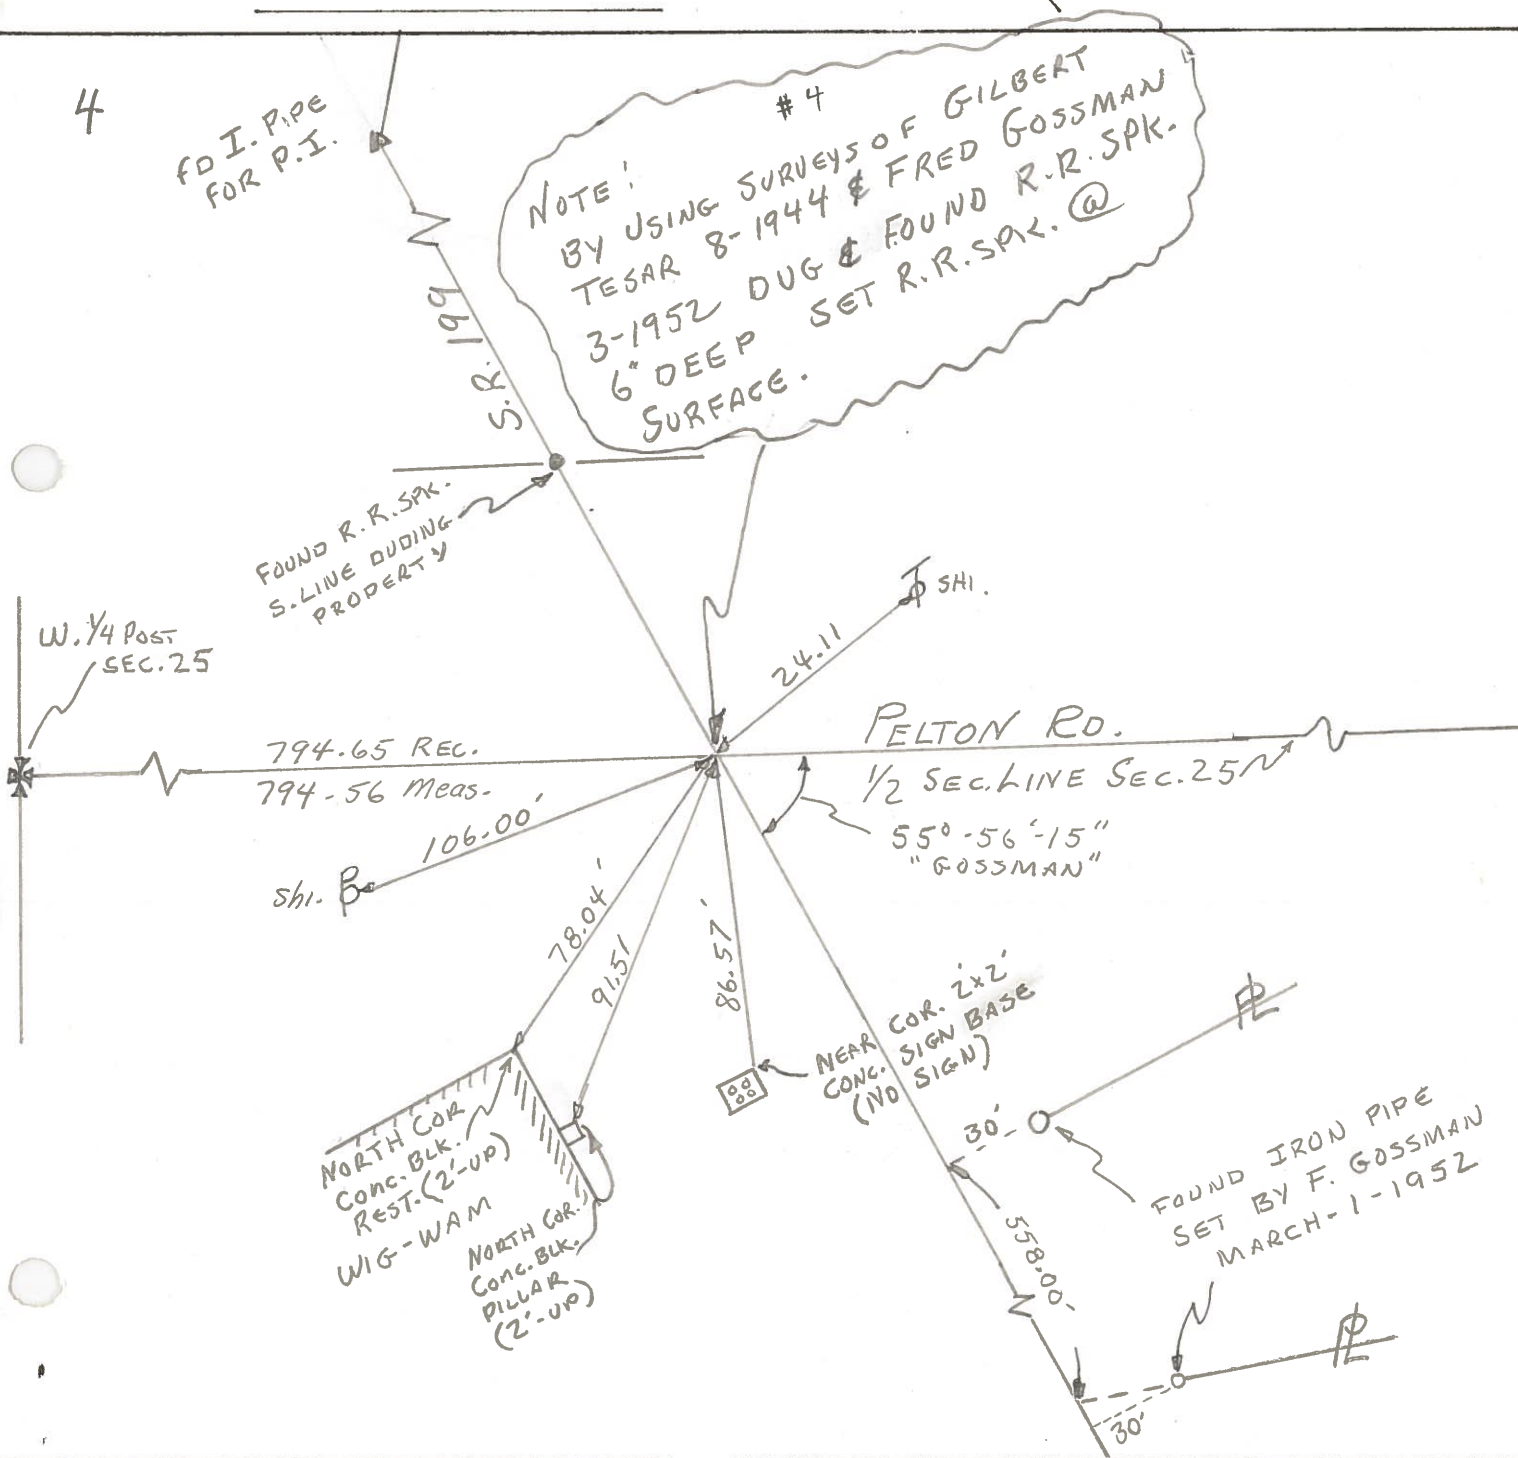 4
FD I. PIPE
FOR P.I.
# 4
NOTE!
BY USING SURVEYS OF GILBERT
TESAR 8-1944 & FRED GOSSMAN
3-1952 DUG & FOUND R.R. SPK.
6" DEEP SET R.R. SPK. @
SURFACE.
S.R. 199
FOUND R.R. SPK.
S. LINE DUDING
PROPERTY
SHI.
24.11
W. 1/4 POST
SEC. 25
794.65 REC.
794.56 Meas.
PELTON RD.
1/2 SEC. LINE SEC. 25
55°-56'-15"
"GOSSMAN"
106.00'
Shi.
78.04'
91.51
86.57'
NEAR COR. 2'x2'
CONC. SIGN BASE
(NO SIGN)
PL
30'
NORTH COR
CONC. BLK.
REST. (2'-UP)
WIG-WAM
NORTH COR.
CONC. BLK.
PILLAR
(2'-UP)
FOUND IRON PIPE
SET BY F. GOSSMAN
MARCH-1-1952
558.00'
PL
30'